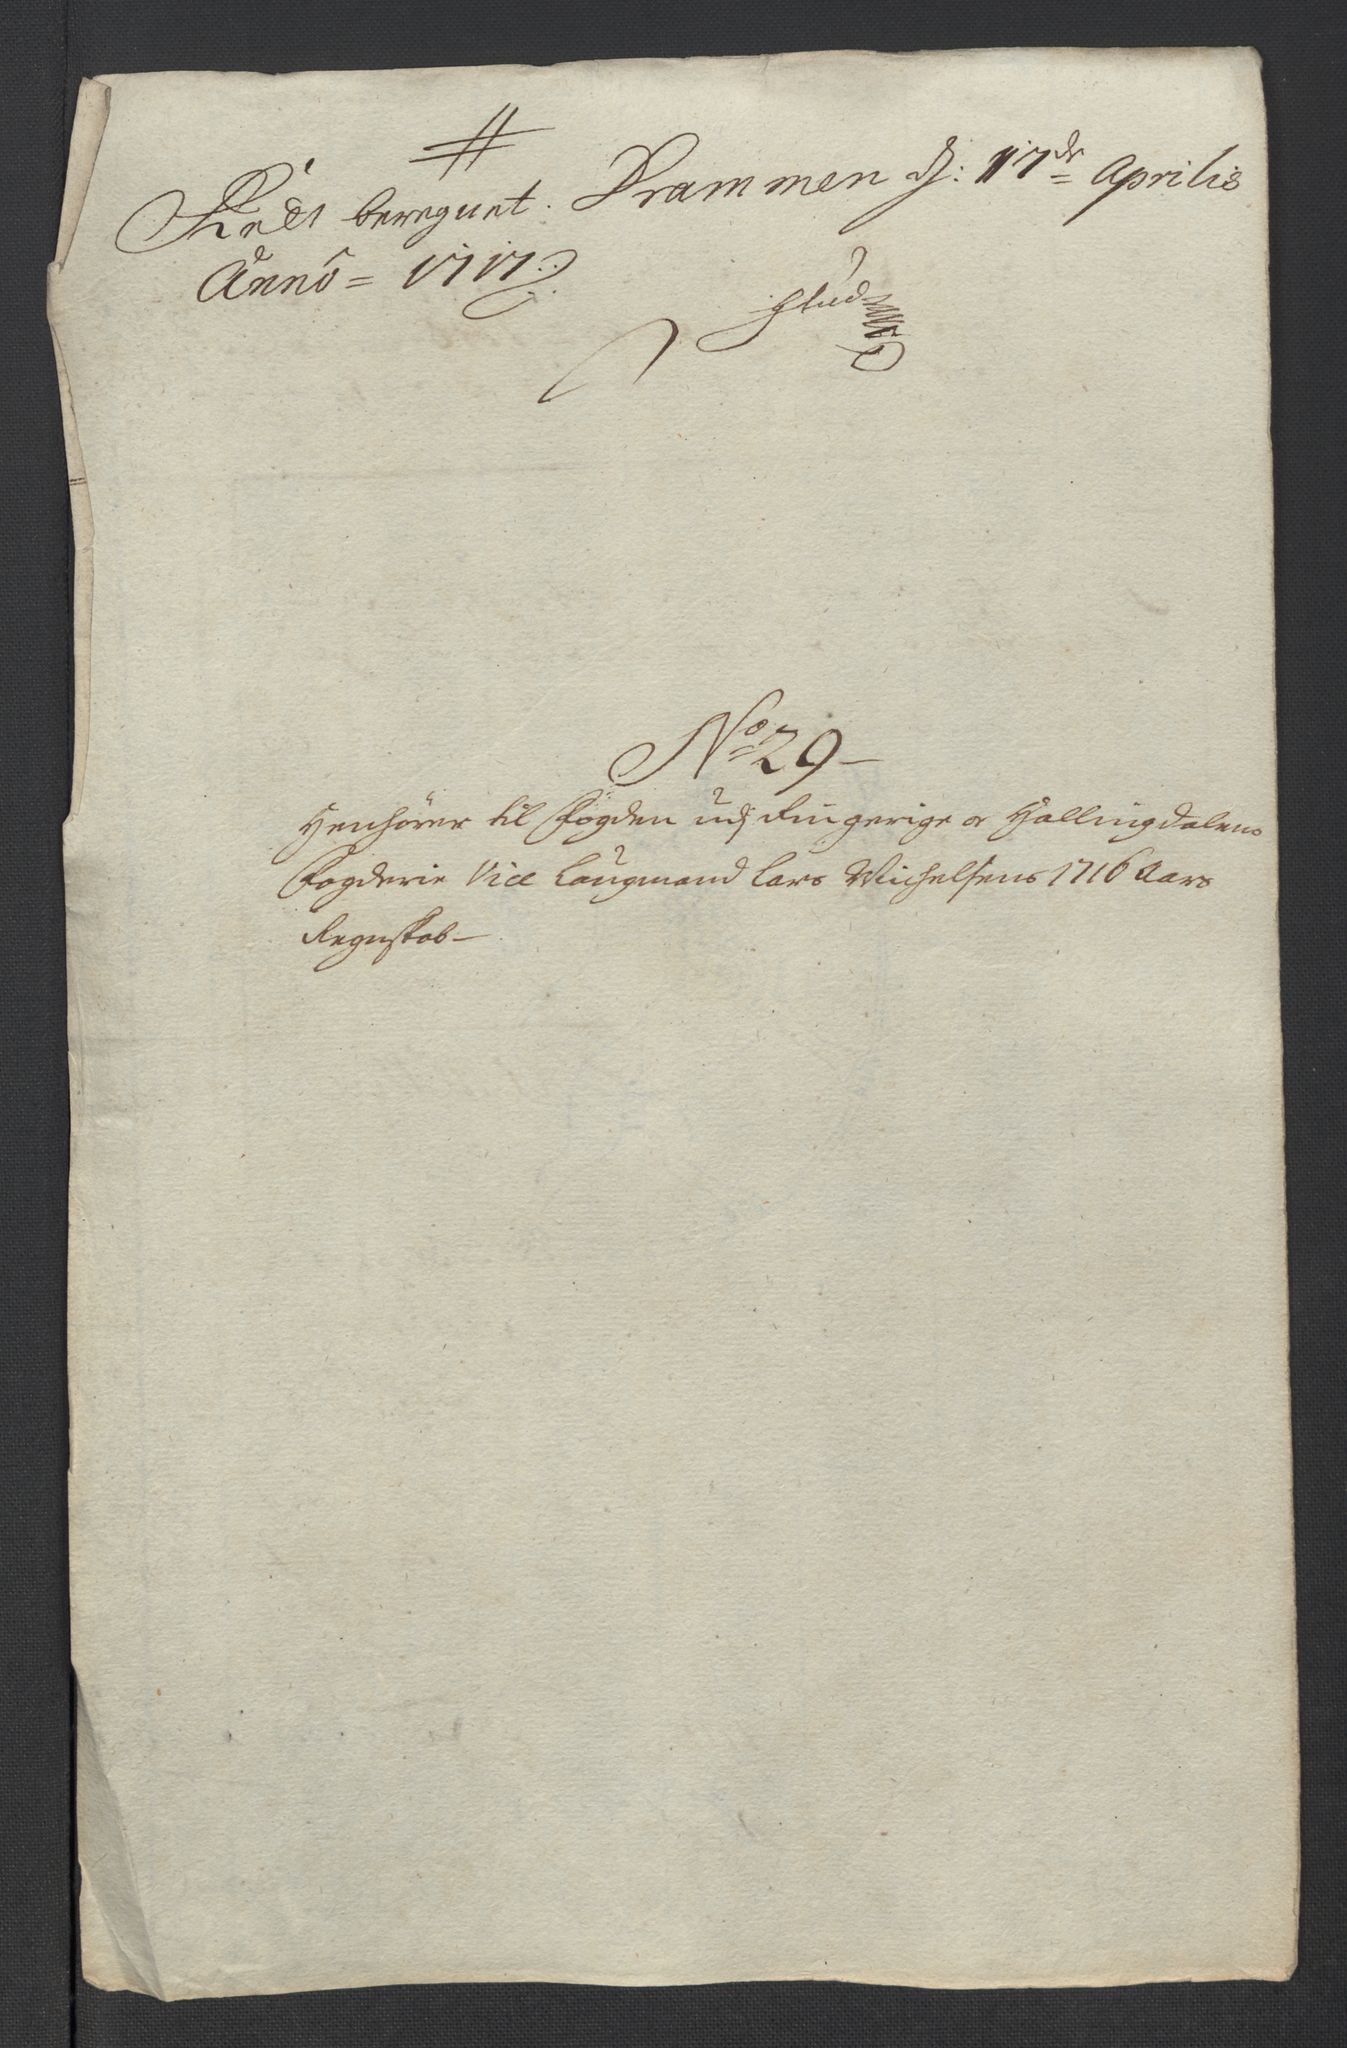 Rett beregnet. Drammen d: 17de Aprilis
Anno = 1717.
Glud
No 29
Henhører til Fogden udj Ringerige oc Hallingdalens
Fogderie Vice Laugmand Lars Michelsens 1716 Aars
Regnskab